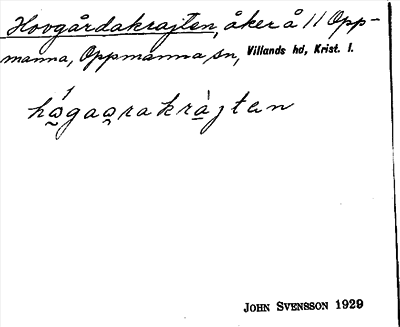 Hovgårdakrajten, åker å 11 Opp-
manna, Oppmanna sn, Villands hd, Krist. l.
hǻgaqrakràjtən
JOHN SVENSSON 1929